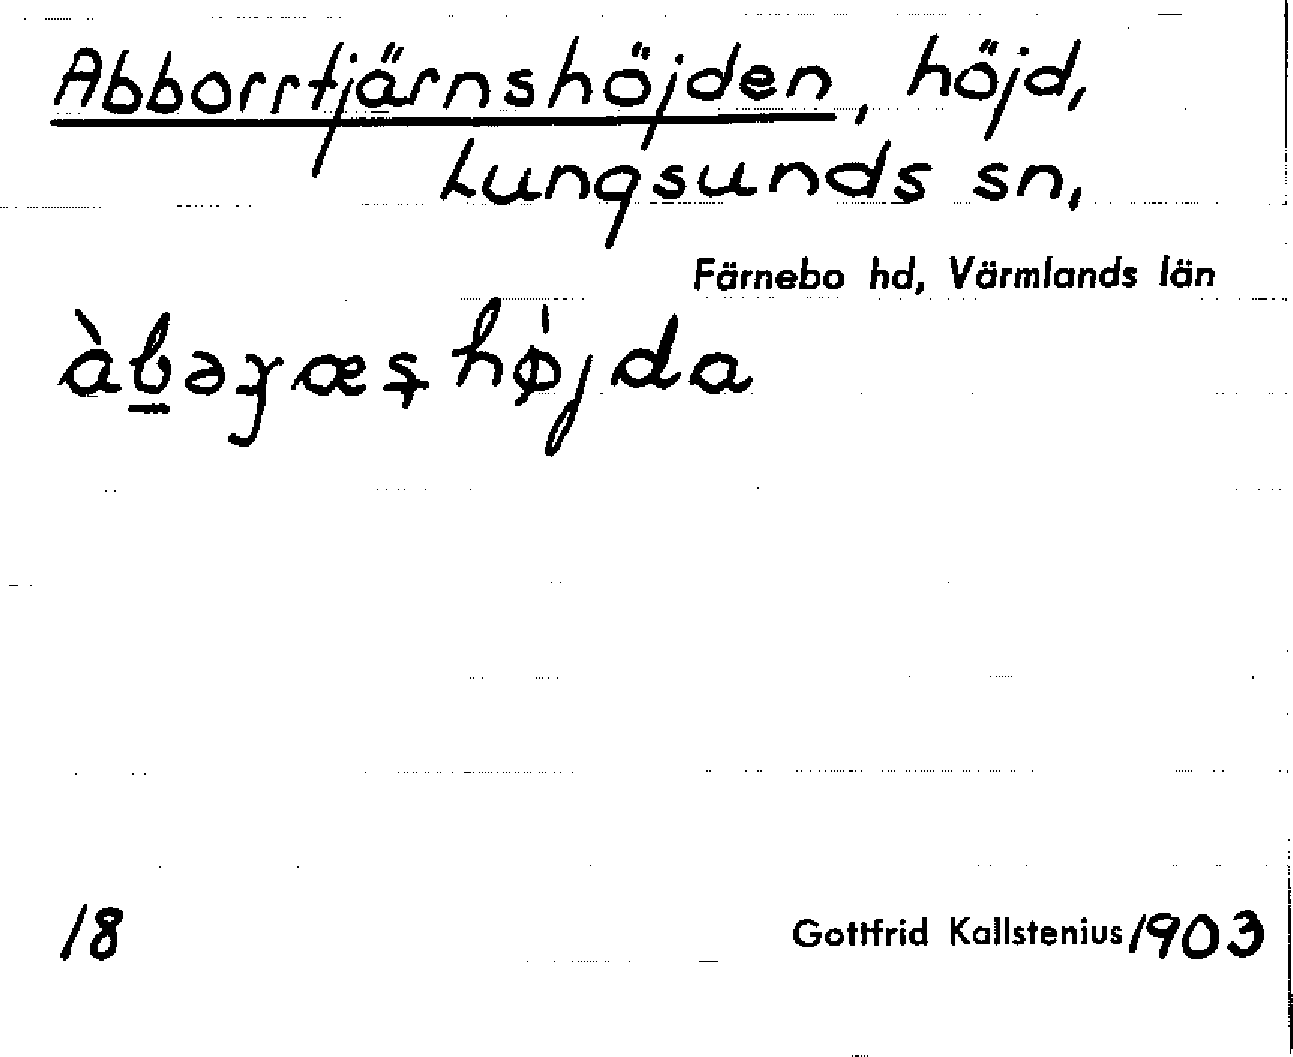 Abborrtjärnshöjden, höjd,
Lungsunds sn,
Färnebo hd, Värmlands län
18
Gottfrid Kallstenius 1903